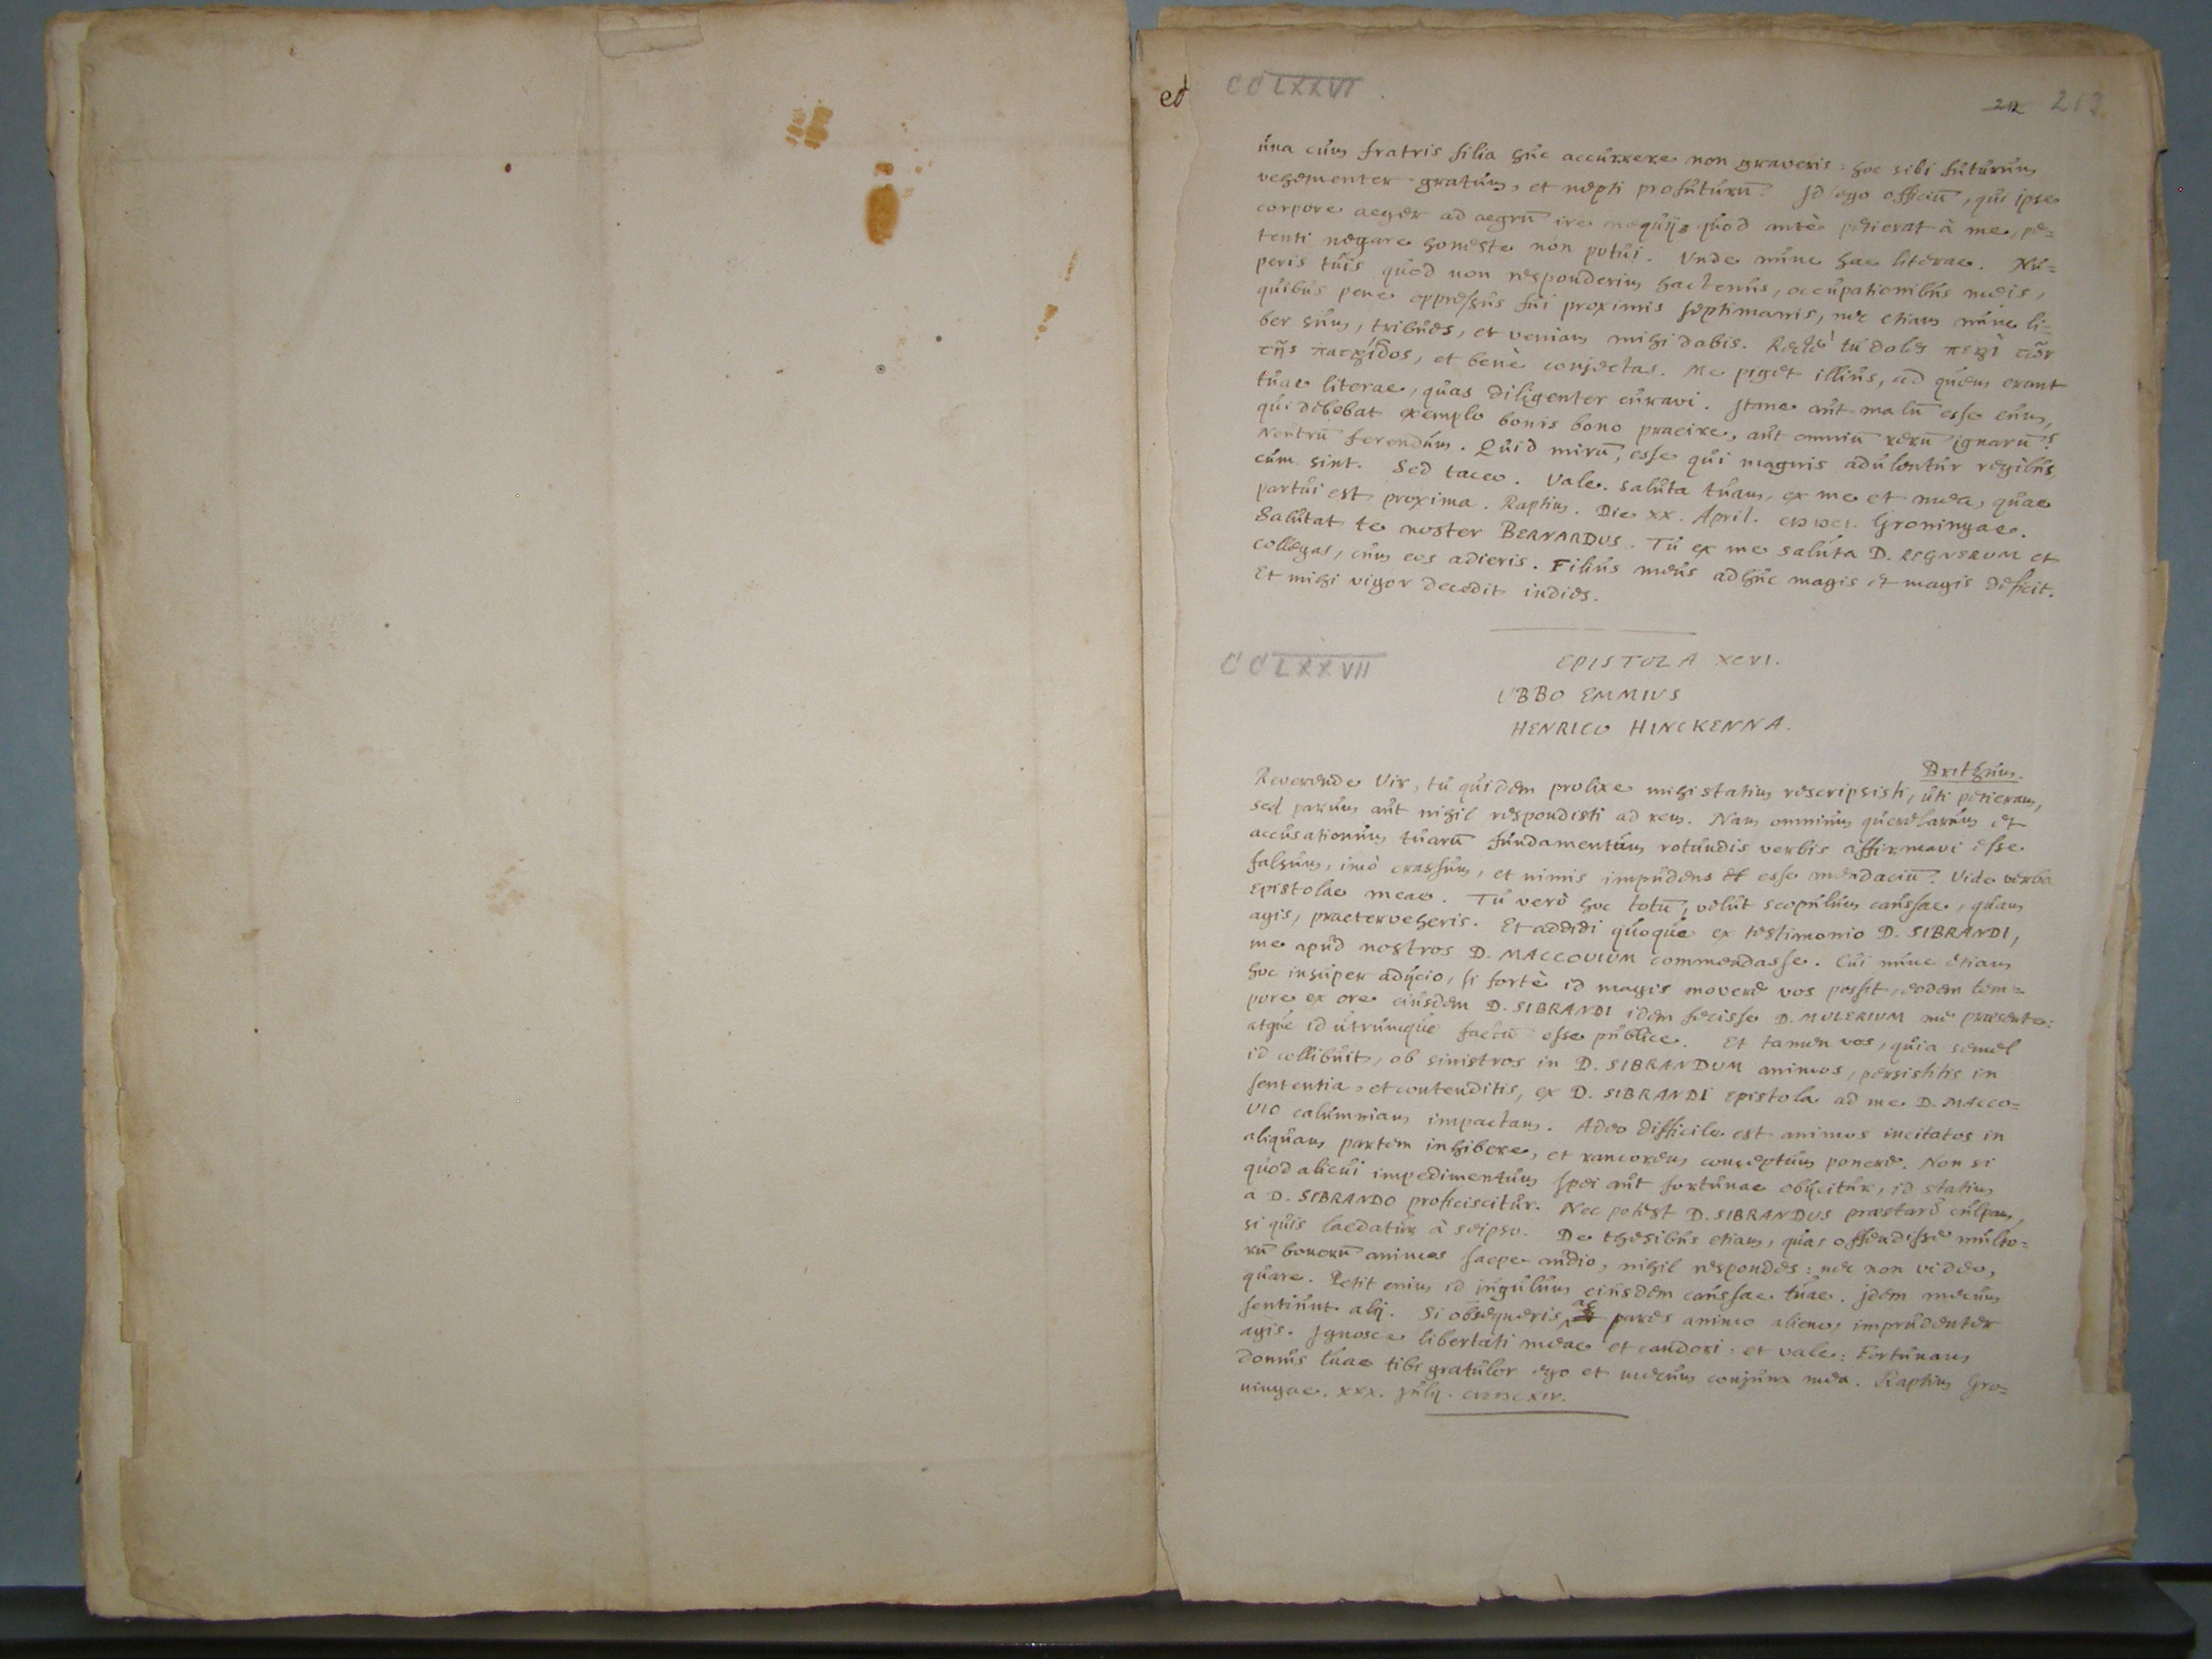 et
CCLXXVI.
212 213
una cum fratris filia huc accurrere non graveris: hoc sibi futurum
vehementer gratum, et nepti profuturū. Id ego officiū, qui ipse
corpore aeger ad aegrū ire nequij quod antè petierat à me, pe=
tenti negare honeste non potui. Unde nunc hae literae. Nu=
peris tuis quod non responderim hactenus, occupationibus meis,
quibus pene oppressus fui proximis septimanis, nec etiam nunc li=
ber sum, tribues, et veniam mihi dabis. Rectè tu doles περὶ τῶν
τῆς πατρίδος, et benè conjectas. Me piget illius, ad quem erant
tuae literae, quas diligenter curavi. Itane aut malū esse eum,
qui debebat exemplo bonis bono praeire, aut omniū rerū ignarū?
Neutrū ferendum. Quid mirū, esse qui magnis adulentur regibus,
cum sint. Sed taceo. Vale. Saluta tuam, ex me et mea, quae
partui est proxima. Raptim. Die XX. April. Groningae.
Salutat te noster BERNARDUS. Tu ex me saluta D. REGNERUM et
collegas, cum eos adieris. Filius meus adhuc magis et magis deficit.
Et mihi vigor decedit indies.
CCLXXVII
EPISTOLA XCVI.
UBBO EMMIUS
HENRICO HINCKENNA.
Reverende Vir, tu quidem prolixe mihi statim rescripsisti, uti petieram,
sed parum aut nihil respondisti ad rem. Nam omnium querelarum et
accusationum tuarū fundamentum rotundis verbis affirmavi esse
falsum, imò crassum, et nimis impudens esse mendaciū. Vide verba
epistolae meae. Tu verò hoc totū, velut scopulum caussae, quam
agis, praeterveheris. Et addidi quoque ex testimonio D. SIBRANDI,
me apud nostros D. MACCOVIUM commendasse. Cui nunc etiam
hoc insuper adijcio, si fortè id magis movere vos possit, eodem tem=
pore ex ore eiusdem D. SIBRANDI idem fecisse D. MULERIUM me praesente:
atque id utrumque factū esse publice. Et tamen vos, quia semel
id collibuit, ob sinistros in D. SIBRANDUM animos, persistitis in
sententia, et contenditis, ex D. SIBRANDI epistola ad me D. MACCO=
VIO calumniam impactam. Adeo difficile est animos incitatos in
aliquam partem inhibere, et rancorem conceptum ponere. Non si
quod alicui impedimentum spei aut fortunae obijcitur, id statim
a D. SIBRANDO proficiscitur. Nec potest D. SIBRANDUS praestare culpam,
si quis laedatur à seipso. De thesibus etiam, quas offendisse multo=
rū bonorū animos saepe audio, nihil respondes: nec non video,
quare. Petit enim id iugulum eiusdem caussae tuae. Idem mecum
sentiunt alij. Si obsequeris, ac pares animo alieno, imprudenter
agis. Ignosce libertati meae et candori: et vale: Fortunam
domus tuae tibi gratulor ego et mecum conjunx mea. Raptim Gro=
ningae. XXX. Julij.